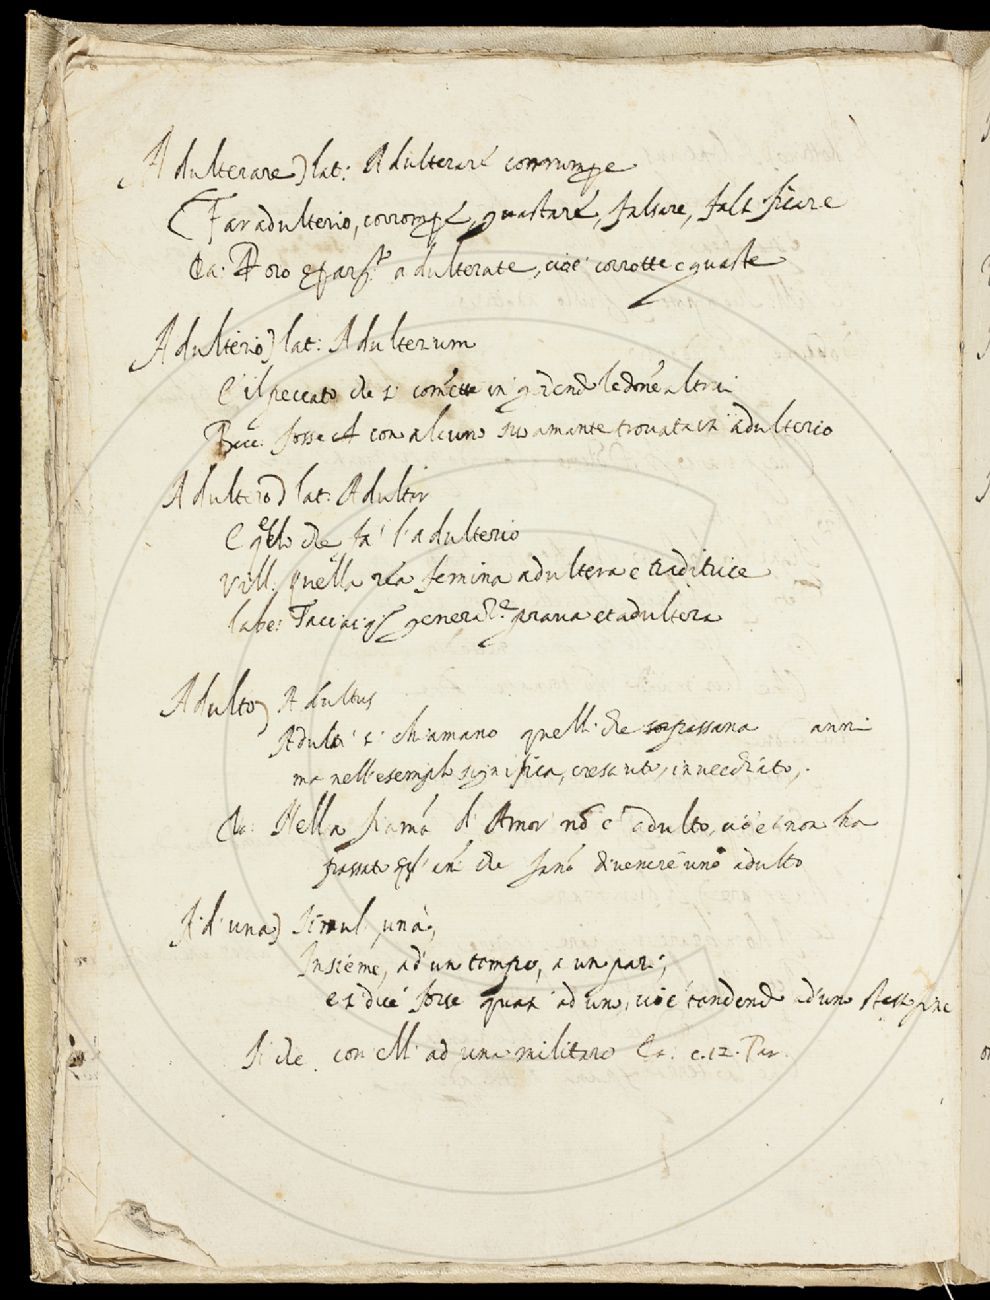 Adulterare) lat: Adulterare corrumpe
Far adulterio, corromp', guastare, falsare, falsificare
Da: Et oro adulterate, cioè corrotte e guaste
Adulterio) lat: Adulterium
E' il peccato che si comette in le done altrui
Bocc: fosse con alcuno suo amante trovata in adulterio
Adultero) lat: Adulter
E quello che fa' l'adulterio
Vill. quella rea femina adultera e traditrice
Taccia generat.e prava et adultera
Adulto) Adultus
Adulti si chiamano quelli che sorpassano anni
ma nell'esempio significa, cresciuto, invecchiato,
Nella fiama di Amor nō è adulto, cioè non ha
passato che fano divenire uno adulto
A'd'una) Simul, unà,
Insieme, ad un tempo, a un pari,
e si dice forse quasi ad uno, cioè tendendo ad uno stesso fine
Si che con elli ad una militaro Da: c.12. Par.